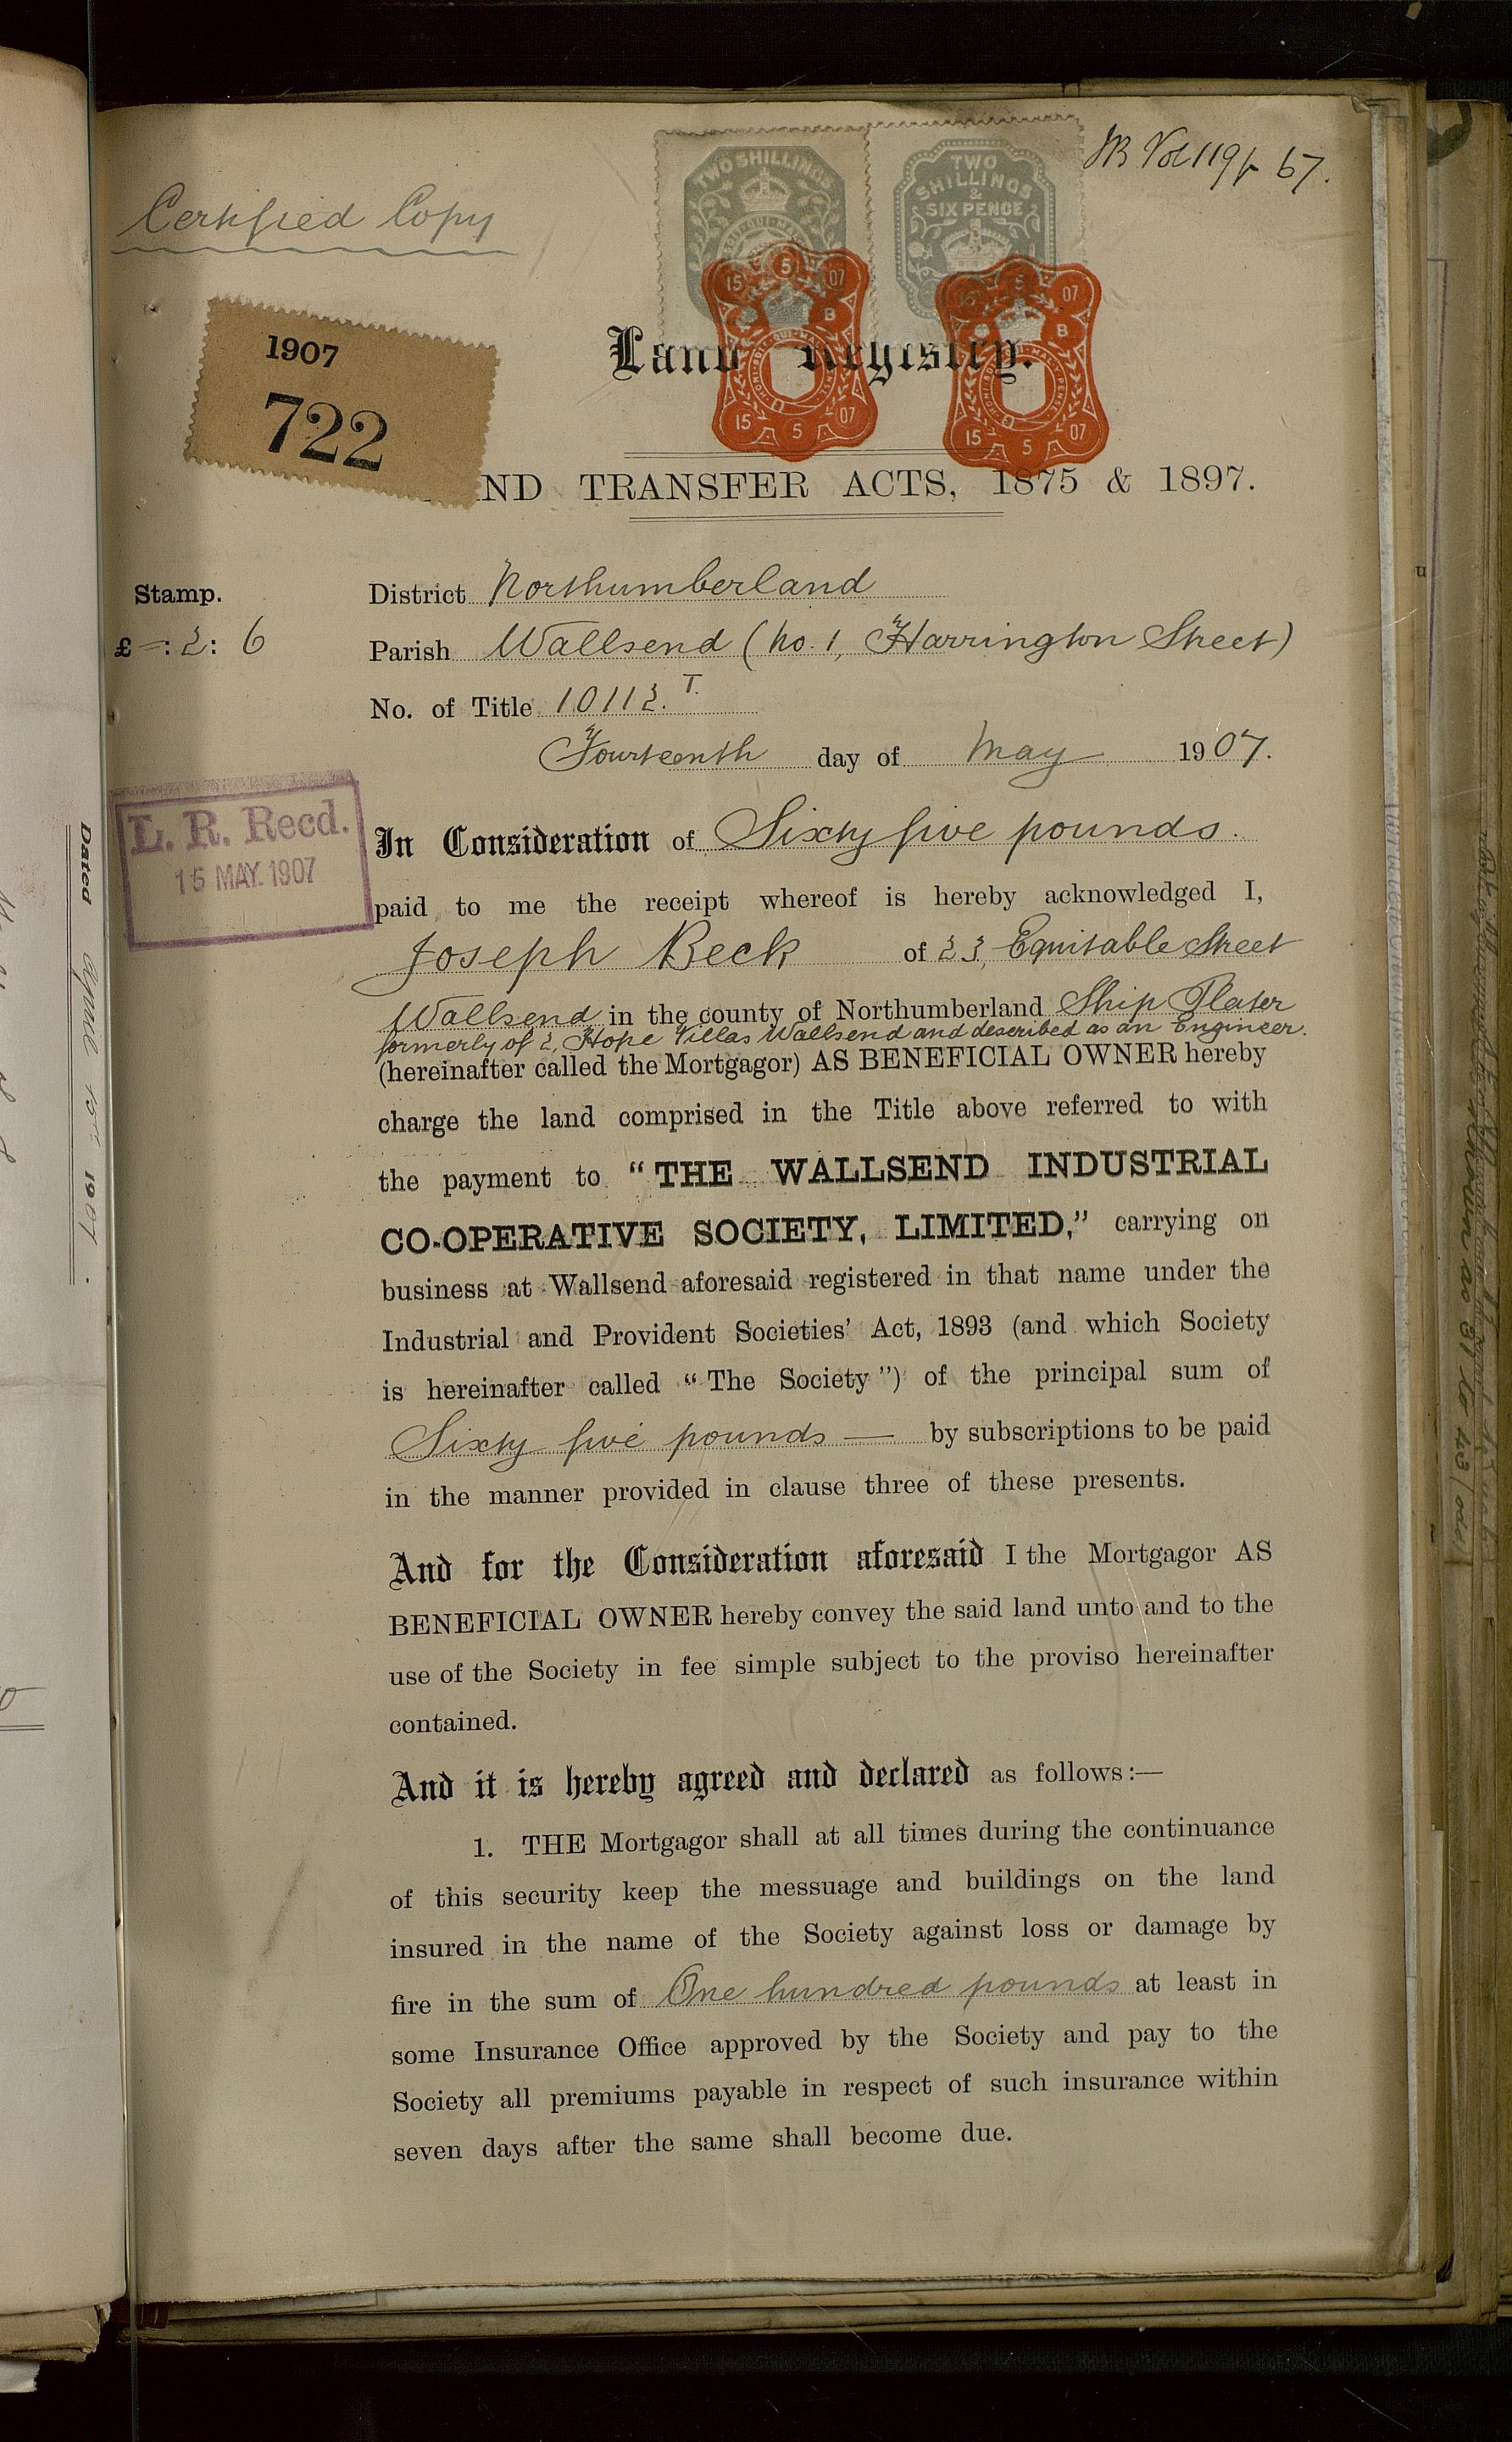 Certified Copy
67.
TWO SHILLINGS
TWO
SHILLINGS
&
SIX PENCE
1907
722
15 5 07
B
15 5 07
15 5 07
B
15 5 07
Land Registry.
ND TRANSFER ACTS, 1875 & 1897.
Stamp.
£ - : 2 : 6
District Northumberland
Parish Wallsend (No. 1, Harrington Street)
No. of Title 10112. T.
Fourteenth day of May 1907.
L. R. Recd.
15 MAY. 1907
In Consideration of Sixty five pounds.
paid to me the receipt whereof is hereby acknowledged I,
Joseph Beck of 23, Equitable Street
Wallsend in the county of Northumberland Ship Plater
formerly of 2, Hope Villas Wallsend and described as an Engineer.
(hereinafter called the Mortgagor) AS BENEFICIAL OWNER hereby
charge the land comprised in the Title above referred to with
the payment to "THE WALLSEND INDUSTRIAL
CO-OPERATIVE SOCIETY, LIMITED," carrying on
business at Wallsend aforesaid registered in that name under the
Industrial and Provident Societies' Act, 1893 (and which Society
is hereinafter called "The Society") of the principal sum of
Sixty five pounds — by subscriptions to be paid
in the manner provided in clause three of these presents.
And for the Consideration aforesaid I the Mortgagor AS
BENEFICIAL OWNER hereby convey the said land unto and to the
use of the Society in fee simple subject to the proviso hereinafter
contained.
And it is hereby agreed and declared as follows:—
1. THE Mortgagor shall at all times during the continuance
of this security keep the messuage and buildings on the land
insured in the name of the Society against loss or damage by
fire in the sum of One hundred pounds at least in
some Insurance Office approved by the Society and pay to the
Society all premiums payable in respect of such insurance within
seven days after the same shall become due.
Dated April 1907.